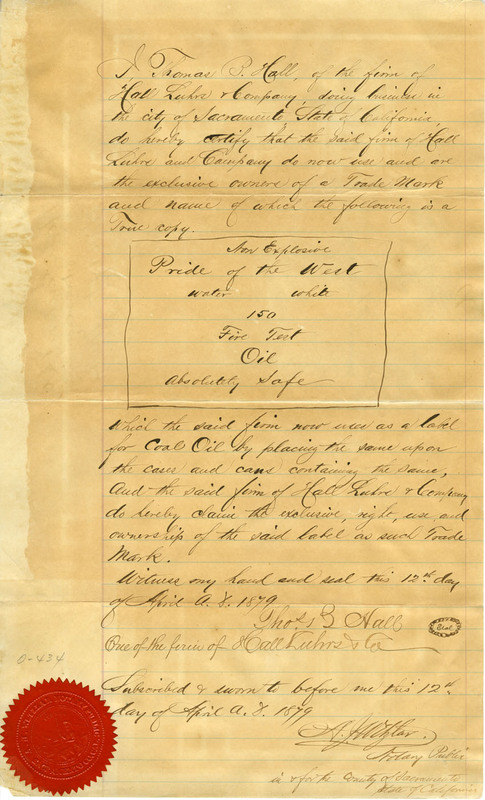 I, Thomas B. Hall, of the firm of
Hall Luhrs & Company, doing business in
the city of Sacramento, State of California,
do hereby certify that the said firm of Hall
Luhrs and Company do now use and are
the exclusive owners of a Trade Mark
and name of which the following is a
True copy.
Non Explosive
Pride of the West
water white
150
Fire Test
Oil
Absolutely Safe
which the said firm now uses as a label
for Coal Oil by placing the same upon
the cases and cans containing the same,
And the said firm of Hall Luhrs & Company
do hereby claim the exclusive, right, use, and
ownership of the said label as such Trade
Mark.
Witness my hand and seal this 12th day
of April A.D. 1879
Thos. B Hall
Seal
One of the firm of Hall Luhrs & Co
0-434
Subscribed & sworn to before me this 12th
day of April A.D. 1879
Notary Public
in & for the County of Sacramento
State of California